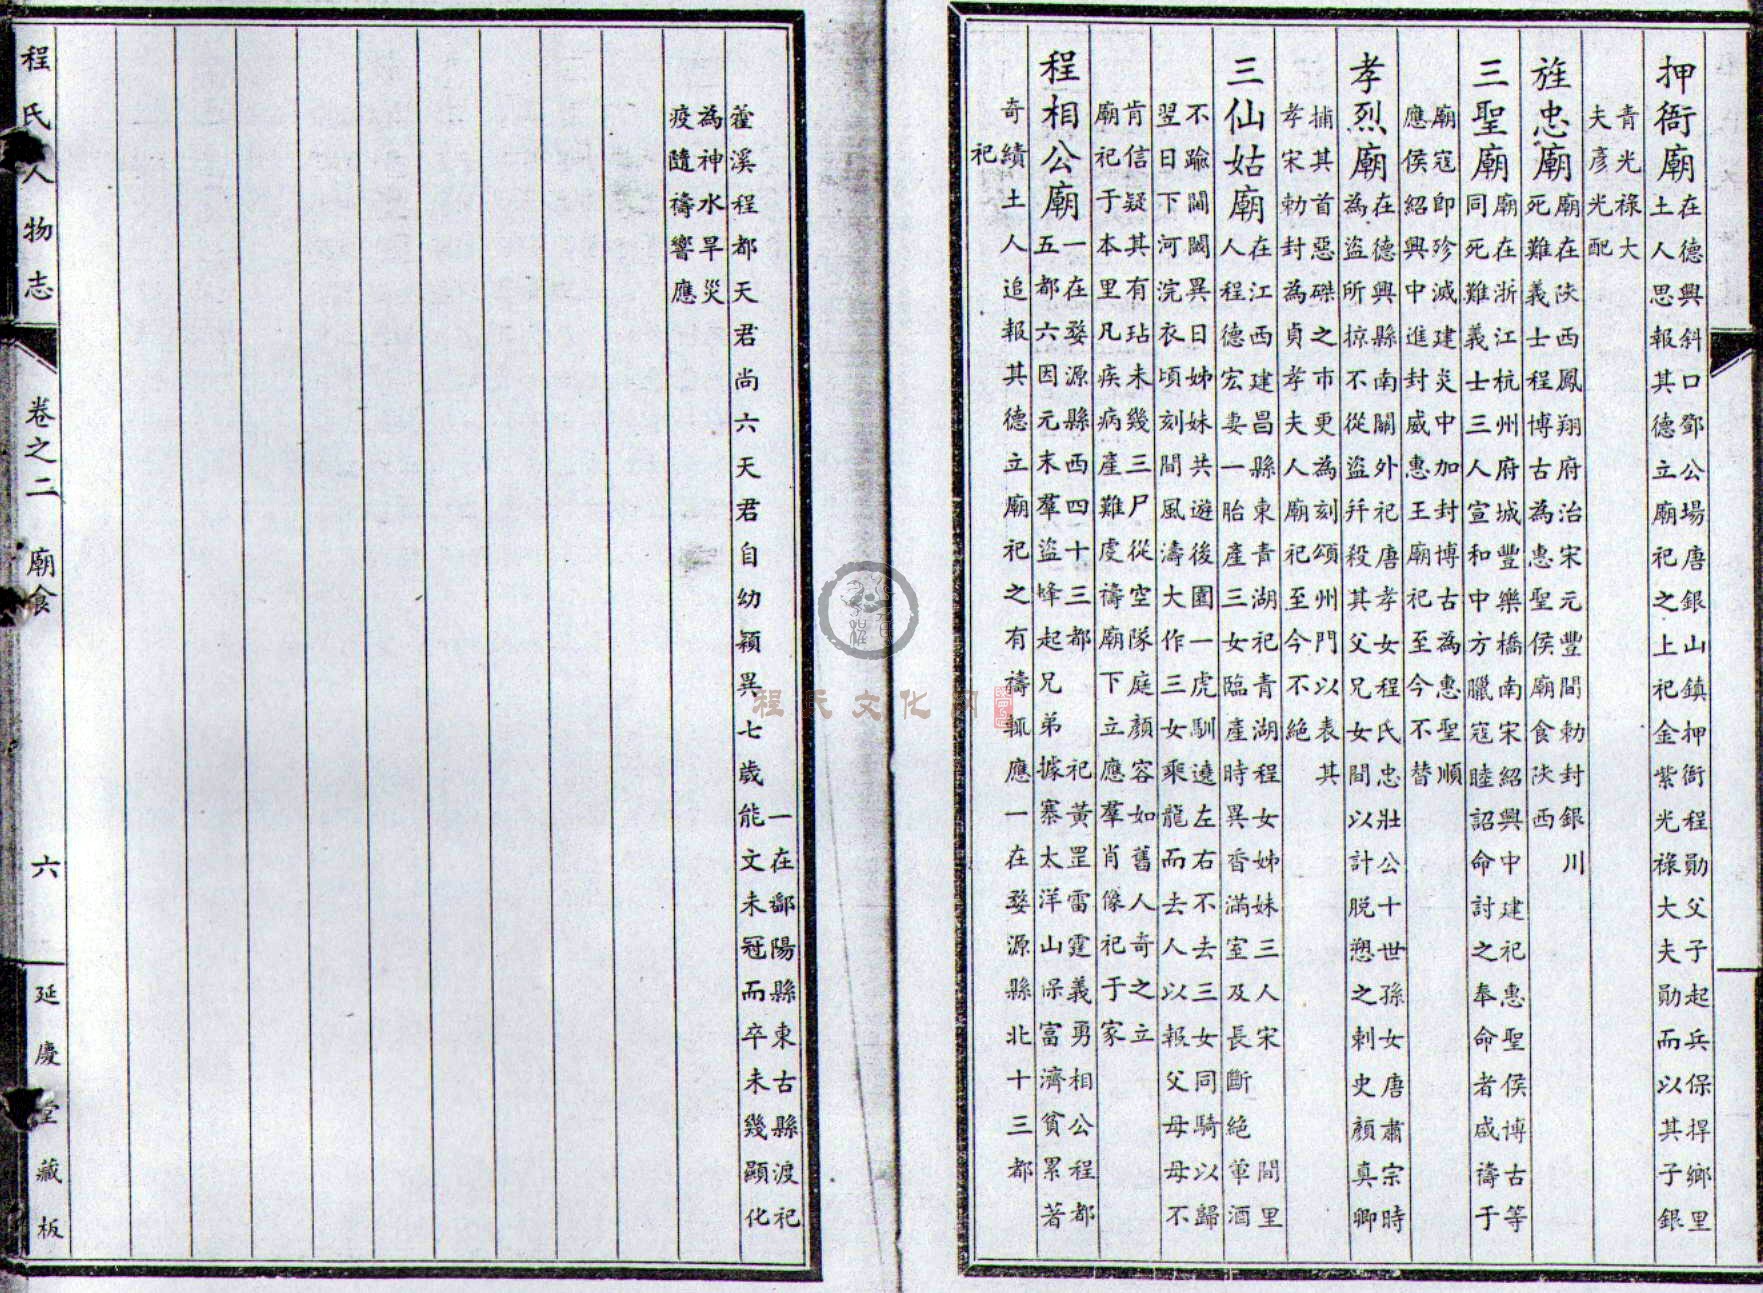 押衙廟
在德興斜口鄧公場唐銀山鎮押衙程勛父子起兵保捍鄉里
土人思報其德立廟祀之上祀金紫光祿大夫勛而以其子銀
青光祿大
夫彥光配
旌忠廟
廟在陝西鳳翔府治宋元豐間勅封銀川
死難義士程博古為惠聖侯廟食陝西
三聖廟
廟在浙江杭州府城豐樂橋南宋紹興中建祀惠聖侯博古等
同死難義士三人宣和中方臘寇睦詔命討之奉命者咸禱于
廟寇即殄滅建炎中加封博古為惠聖順
應侯紹興中進封威惠王廟祀至今不替
孝烈廟
在德興縣南關外祀唐孝女程氏忠壯公十世孫女唐肅宗時
為盜所掠不從盜幷殺其父兄女間以計脫愬之刺史顏真卿
捕其首惡磔之市更為刻頌州門以表其
孝宋勅封為貞孝夫人廟祀至今不絕
三仙姑廟
在江西建昌縣東青湖祀青湖程女姊妹三人宋間里
人程德宏妻一胎產三女臨產時異香滿室及長斷絕葷酒
不踰閫閾異日姊妹共遊後園一虎馴遶左右不去三女同騎以歸
翌日下河浣衣頃刻間風濤大作三女乘龍而去人以報父母母不
肯信疑其有玷未幾三尸從空隊下庭顏容如舊人奇之立
廟祀于本里凡疾病產難虔禱廟下立應羣肖像祀于家
程相公廟
一在婺源縣西四十三都祀黃罡雷霆義勇相公程都
五都六因元末羣盜蜂起兄弟據寨太洋山保富濟貧累著
奇績土人追報其德立廟祀之有禱輒應一在婺源縣北十三都
祀
一在鄱陽縣東古縣渡祀
藿溪程都天君尚六天君自幼穎異七歲能文未冠而卒未幾顯化
為神水旱災
疫隨禱響應
程氏人物志 卷之二 廟食 六 延慶堂藏板
程氏文化网